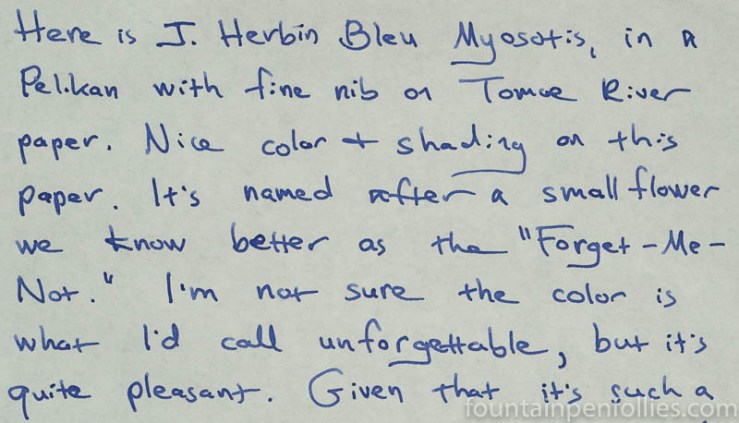 Here is J. Herbin Bleu Myosotis, in a
Pelikan with fine nib on Tomoe River
paper. Nice color + shading on this
paper. It's named after a small flower
we know better as the "Forget-Me-
Not." I'm not sure the color is
what I'd call unforgettable, but it's
quite pleasant. Given that it's such a
fountainpenfollies.com